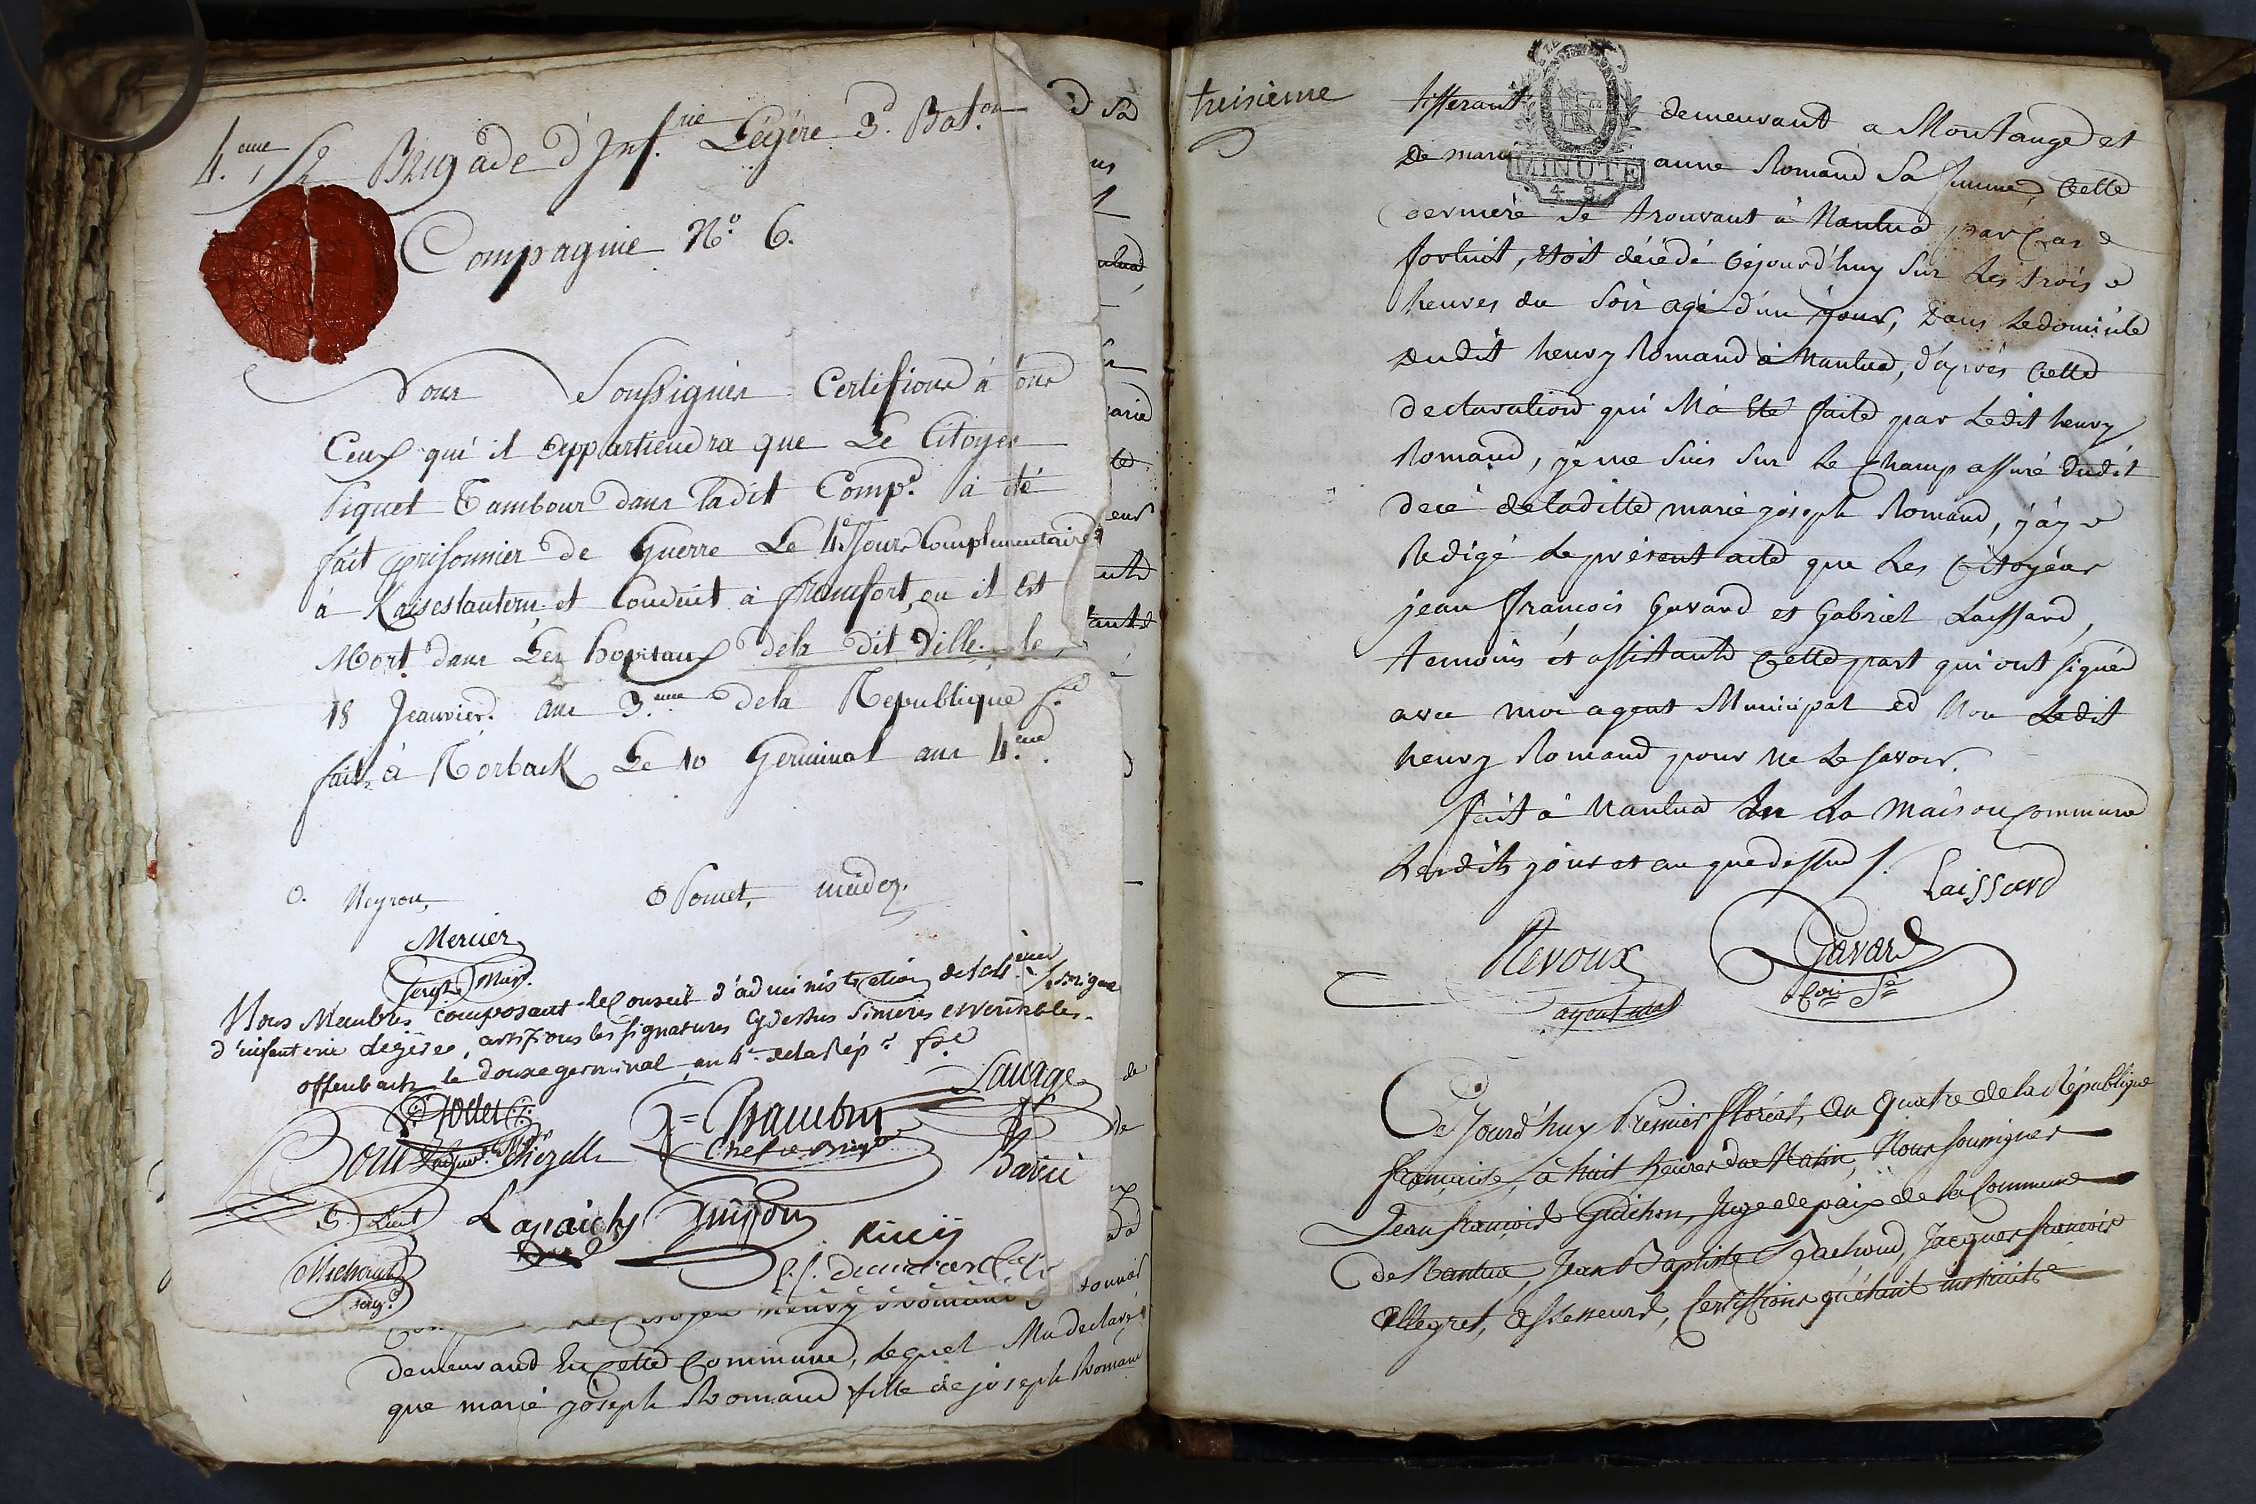 4.eme 1/2 Brigade d'Inf.rie Légére 3.d Bat.on
Compagnie N.o 6.
Nous Soussignés Certifions à tous
Ceux qui il appartiendra que Le Citoyen
Piquet Tambour dans ladit Comp.e a été
fait prisonnier de Guerre Le 4.e Jour Complementaire
à Kaiseslautern et Conduit à francfort, ou il Est
Mort dans Les hopitaux dela dit Ville. le
18 Jeanvier. an 3.eme dela Republique f.se
fait à Rorback Le 10 Germinal an 4.eme
Neyron,
Mercier
Sergt Maj.r
Nous Membres composant le Conseil d'administration de la 4.eme 1/2 Brigade
d'infanterie légère, certifions les signatures cydessus sinceres et veritables.
offenbach le douze germinal an 4.e de la Rép.e f.se
Sauvage
Chef de Brig.de
S. Lieut
Michaud
serg.t
demeurand en cette Commune, lequel M'a declaré
que marie joseph Romand fille de joseph Romand
treisieme
tisserant demeurant a Montange et
MINUTE
De marie anne Romand sa femme, cette
derniere se trouvant à Nantua par cas
fortuit, étoit décédé cejourd'huy sur les trois
heures du soir agé d'un jour, dans le domicile
dudit henry Romand à Nantua, d'après cette
declaration qui M'a été faite par ledit henry
Romand, je me suis sur le champ assuré dudit
decé de la ditte marie joseph Romand, j'ay
Redigé le présent acte que les Citoyens
jean françois Gavard et Gabriel Laissard,
temoins et assistants cette part qui ont signés
avec moi agent Municipal et Non ledit
henry Romand pour ne le savoir.
fait à Nantua en la maison commune
lesdits jour et an que dessus /.
Laissard
Revoux
Gavard
agent mal
Ce Jourd'huy Premier floréal, an quatre de la République
française, à huit heures du Matin, Nous soussignés
Jean françois Guichon, Juge de paix de la Commune
de Nantua, Jean Baptiste Jacques françois
allegret, assesseurs, Certifions qu'étant instruits